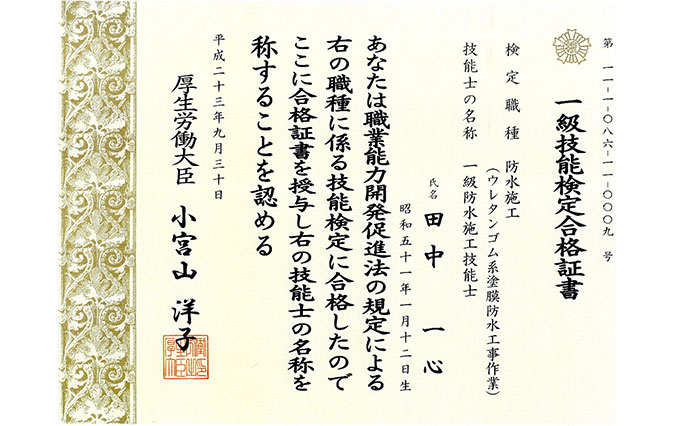 第一一-一-〇八六-一一-〇〇〇九号
一級技能検定合格証書
検定職種 防水施工
(ウレタンゴム系塗膜防水工事作業)
技能士の名称 一級防水施工技能士
氏名 田中 一心
昭和五十一年一月十二日生
あなたは職業能力開発促進法の規定による
右の職種に係る技能検定に合格したので
ここに合格証書を授与し右の技能士の名称を
称することを認める
平成二十三年九月三十日
厚生労働大臣 小宮山 洋子